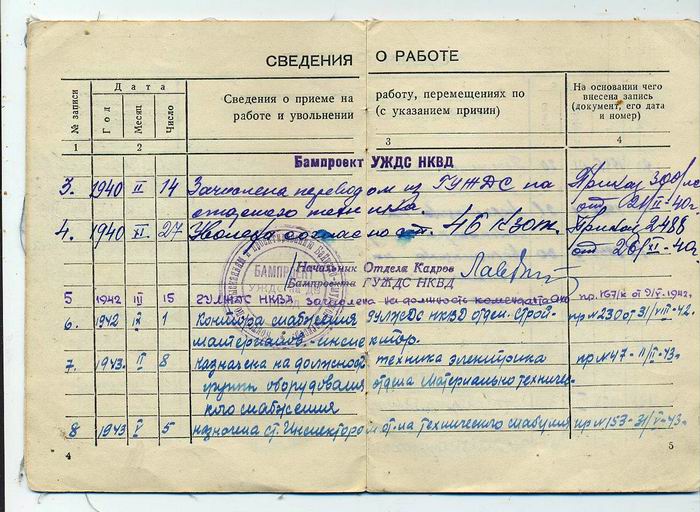 СВЕДЕНИЯ О РАБОТЕ
№ записи
Дата
Год
Месяц
Число
Сведения о приеме на работу, перемещениях по
работе и увольнении (с указанием причин)
На основании чего
внесена запись
(документ, его дата
и номер)
1 2 3 4
Бампроект УЖДС НКВД
3. 1940 II 14 Зачислена переводом из ГУЖДС на Приказ
от
4. 1940 XI 27 Уволена согласно ст. 46 КЗОТ. Приказ 2488
от 26/XI-40г
БАМПРОЕКТ
Начальник Отдела Кадров
Бампроекта ГУЖДС НКВД
5 1942 III 15 НКВД зачислена на должность пр. 167/к от 1942.
6. 1942 IX 1 снабжения ГУЛЖДС НКВД отдел. строй- пр № 230 от 31/VIII-42.
материалов.-инспектор.
7. 1943. II 8 Назначена на должность техника электрика пр № 47-11/II-43г
группы оборудования отдела материально технического
снабжения
8 1943 V 5 назначена ст. Инспектором от-ла технического снабжения пр № 153-31/V-43г.
4 5